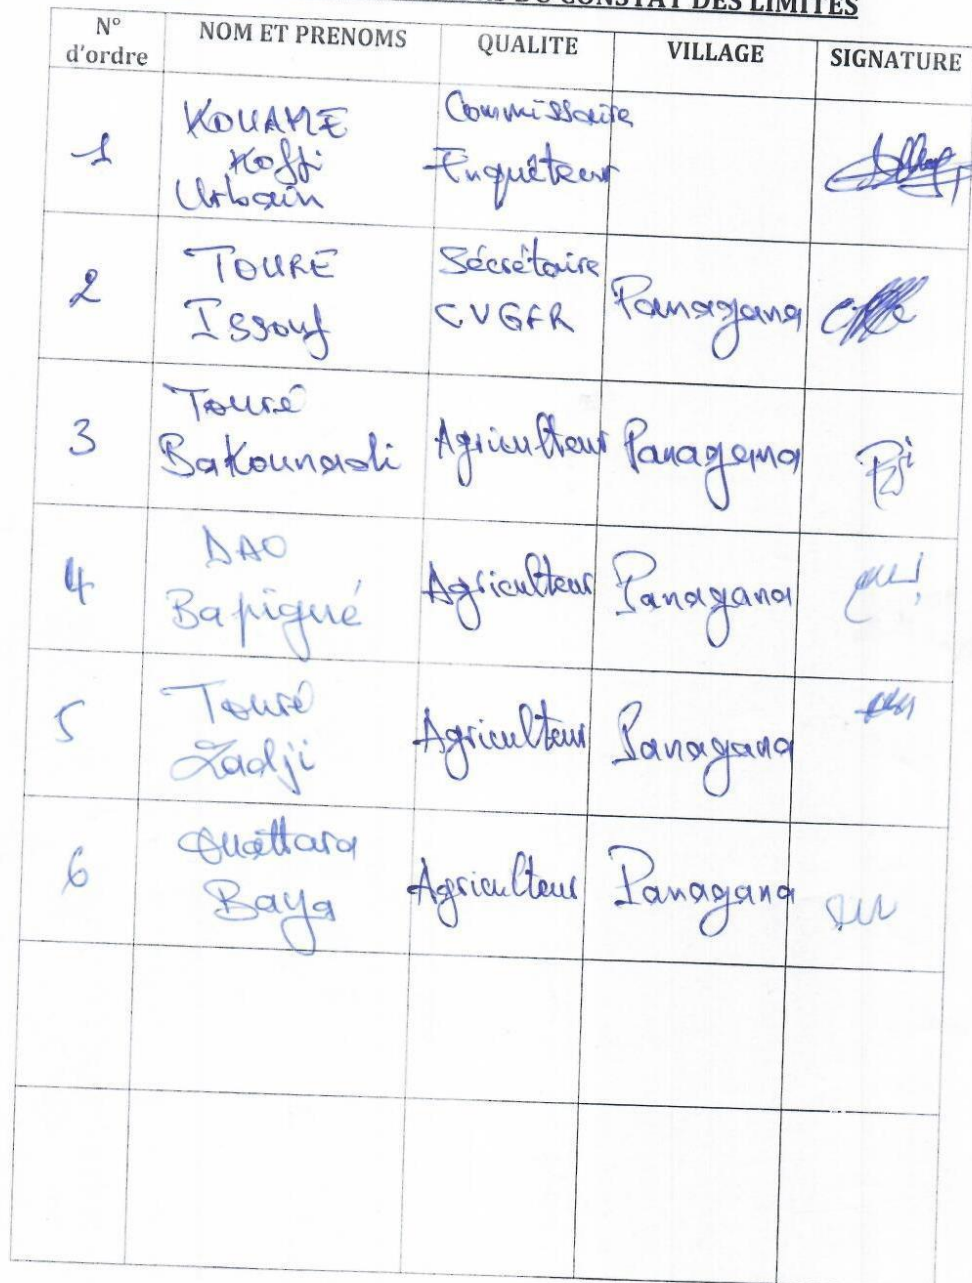 DU CONSTAT DES LIMITES
N° d'ordre NOM ET PRENOMS QUALITE VILLAGE SIGNATURE
1 KOUAME Koffi Urbain Commissaire Enquêteur
2 TOURE Issouf Sécrétaire CVGFR Panagana
3 Touré Bakounadi Agriculteur Panagana
4 DAO Bapigué Agriculteur Panagana
5 Touré Zadji Agriculteur Panagana
6 Ouattara Baya Agriculteur Panagana